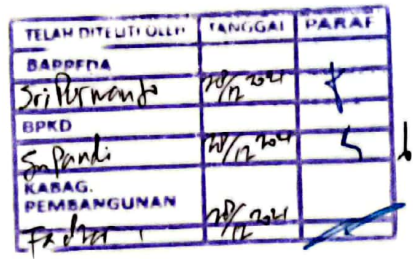 TELAH DITELITI OLEH TANGGAL PARAF
BAPPEDA
Sri Purwanto 28/12 2021
BPKD
Supandi 28/12 2021
KABAG.
PEMBANGUNAN
28/12 2021